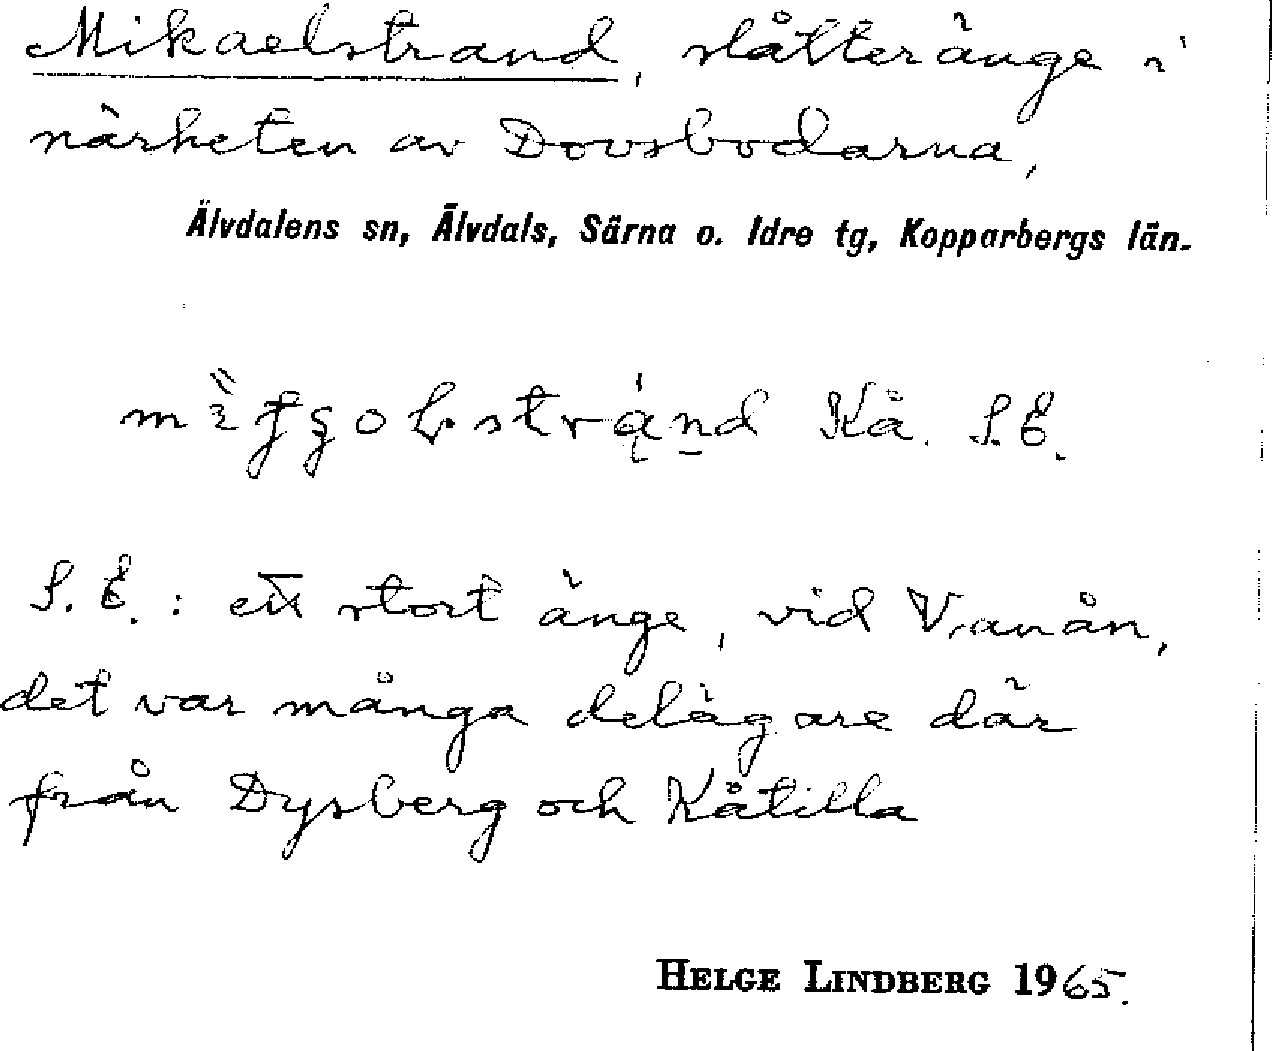 Mikaelstrand, slåtteränge i
närheten av Dovsbodarna,
Älvdalens sn, Älvdals, Särna o. Idre tg, Kopparbergs län.
Kå. S.E.
S.E.: ett stort änge, vid Vanån,
det var många delägare där
från Dysberg och Kåtilla
HELGE LINDBERG 1965.